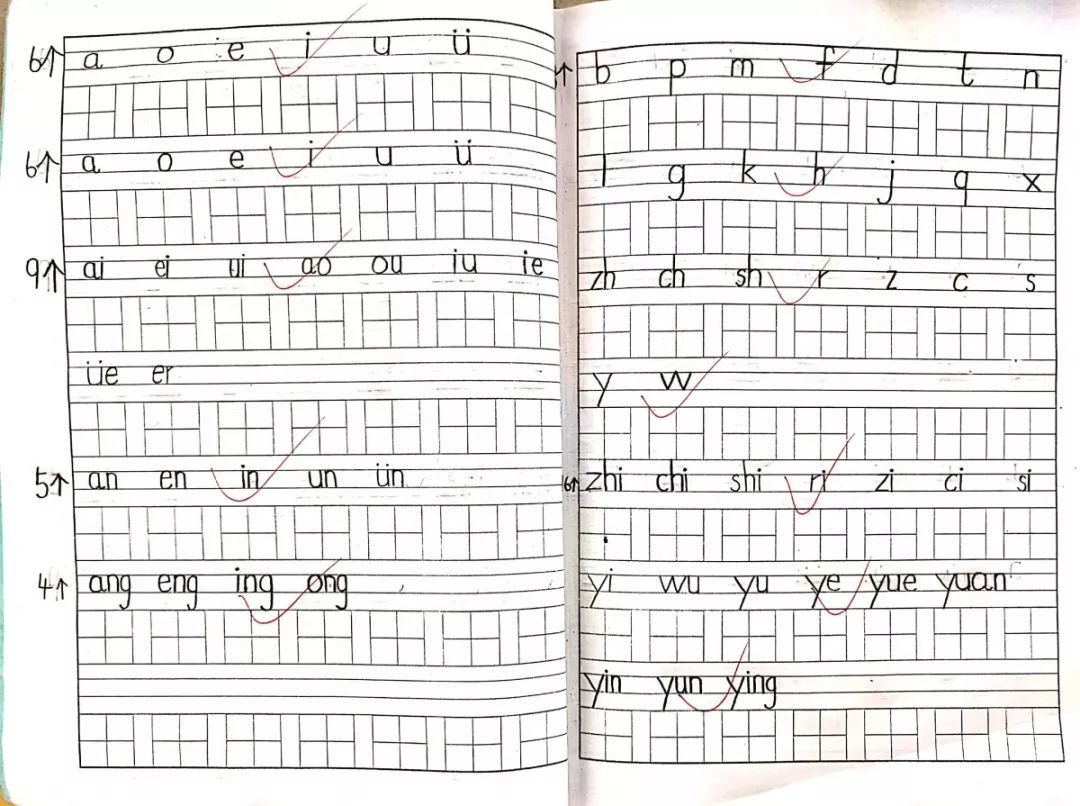 6个 a o e i u ü
6个 a o e i u ü
9个 ai ei ui ao ou iu ie
üe er
5个 an en in un ün
4个 ang eng ing ong
个 b p m f d t n
l g k h j q x
zh ch sh r z c s
y w
16个 zhi chi shi ri zi ci si
yi wu yu ye yue yuan
yin yun ying